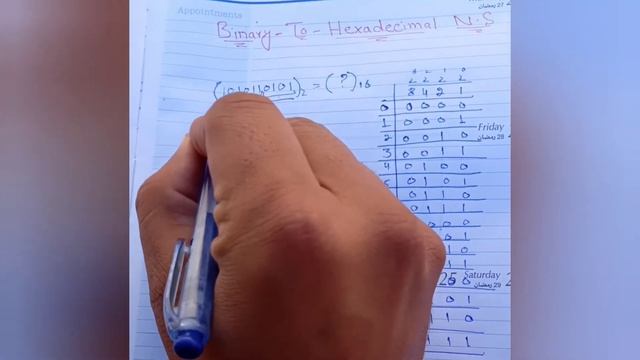 Appointments
Binary - To - Hexadecimal N.S
(1010110101)₂ = (?)₁₆
3 2 1 0
2 2 2 2
8 4 2 1
0 0 0 0 0
1 0 0 0 1
2 0 0 1 0
3 0 0 1 1
4 0 1 0 0
0 1 0 1
0 1 1 0
0 1 1 1
0 0
0 1
1 0
1 1
0 0
0 1
1 1 0
1 1 1
Friday
28 رمضان
25 Saturday
29 رمضان